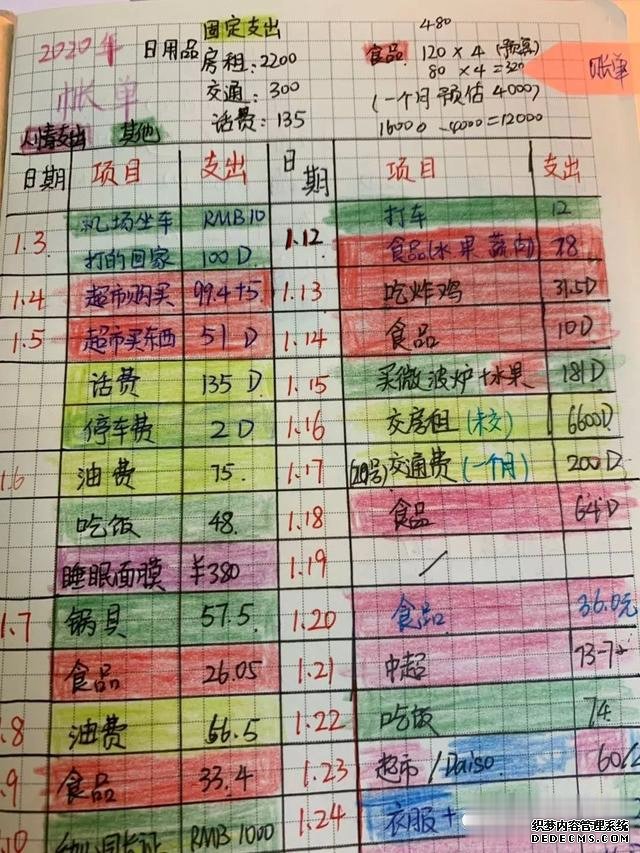 2020年
帐单
日用品
固定支出
房租:2200
交通:300
话费:135
480
食品 120×4 (预算)
80×4=320
(一个月预估4000)
16000-4000=12000
帐单
人情支出 其他
日期 项目 支出
1.3 机场坐车 RMB10
打的回家 100D
1.4 超市购买 99.4+5
1.5 超市买东西 51D
话费 135D
停车费 2D
1.6 油费 75.
吃饭 48.
睡眠面膜 ¥380
1.7 锅具 57.5.
食品 26.05
.8 油费 66.5
.9 食品 33.4
RMB1000
日期 项目 支出
1.12 打车 12
食品(水果蔬肉) 78
1.13 吃炸鸡 31.5D
1.14 食品 10D
1.15 买微波炉+水果 181D
1.16 交房租(未交) 6600D
1.17 交通费(一个月) 200D
1.18 食品 64D
1.19 /
1.20 食品 36.0元
1.21 中超
1.22 吃饭 74
1.23 超市/Daiso 60/
1.24 衣服+
织梦内容管理系统
DEDECMS.COM